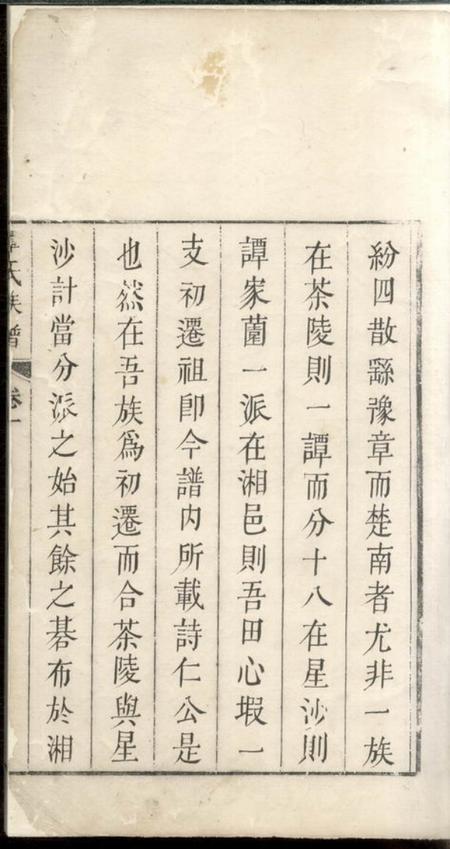 紛四散繇豫章而楚南者尤非一族
在茶陵則一譚而分十八在星沙則
譚家蘭一派在湘邑則吾田心塅一
支初遷祖卽今譜内所載詩仁公是
也然在吾族爲初遷而合茶陵與星
沙計當分派之始其餘之碁布於湘
氏族譜
卷一